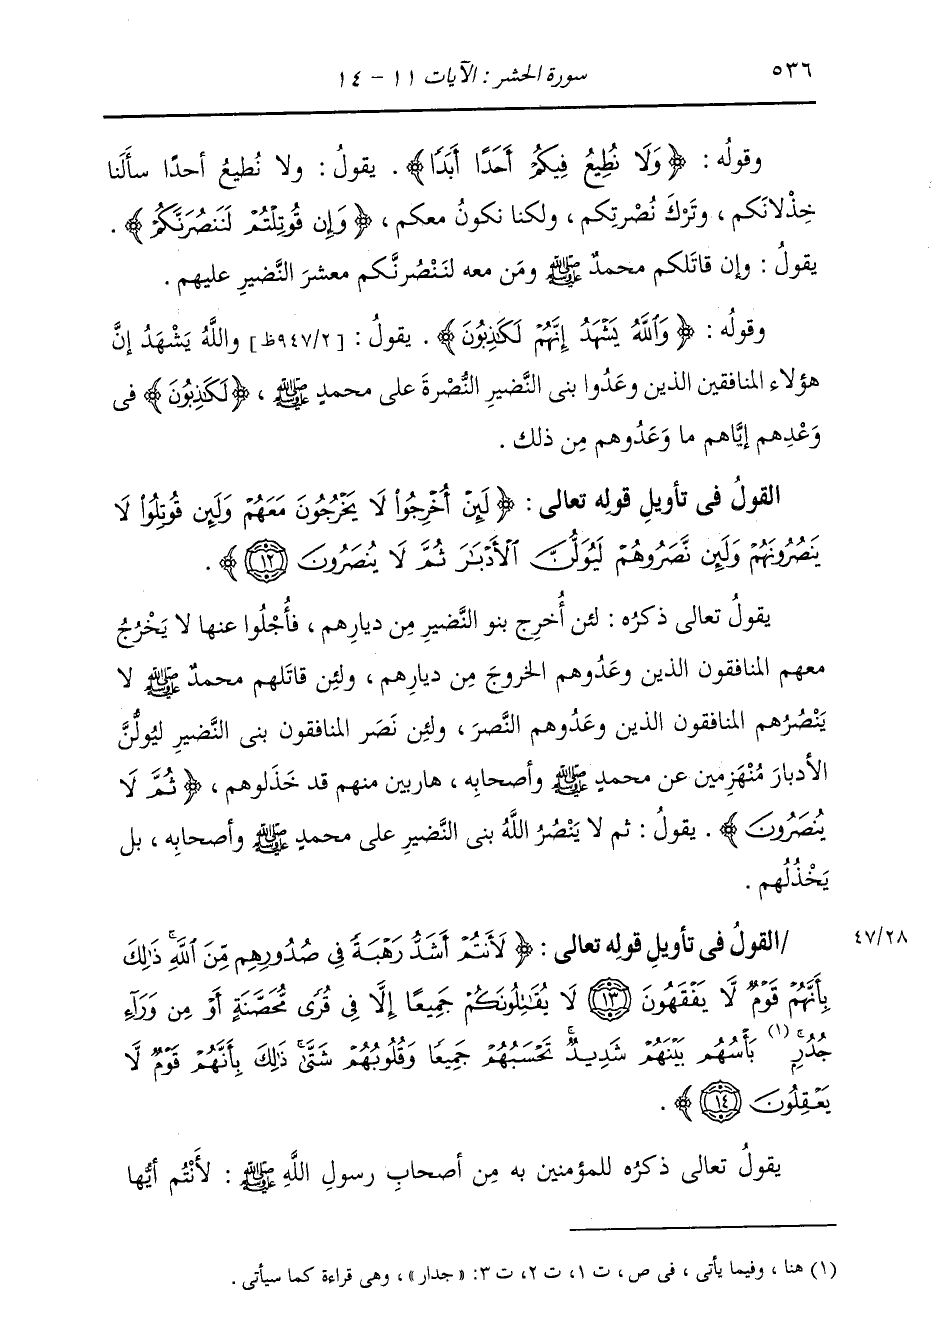 ٥٣٦ سورة الحشر : الآيات ١١ - ١٤
وقولُه : ﴿ وَلَا نُطِيعُ فِيكُمْ أَحَدًا أَبَدًا ﴾ . يقولُ : ولا نُطيعُ أحدًا سألَنا
خِذْلانَكم ، وتَرْكَ نُصْرتِكم ، ولكنا نكونُ معكم ، ﴿ وَإِن قُوتِلْتُمْ لَنَنصُرَنَّكُمْ ﴾ .
يقولُ : وإن قاتَلكم محمدٌ ﷺ ومَن معه لنَنْصُرنَّكم معشرَ النَّضيرِ عليهم .
وقولُه : ﴿ وَٱللَّهُ يَشْهَدُ إِنَّهُمْ لَكَٰذِبُونَ ﴾ . يقولُ : [ ٩٤٧/٢ظ] واللَّهُ يَشْهَدُ إنَّ
هؤلاء المنافقين الذين وعَدُوا بنى النَّضيرِ النُّصْرةَ على محمدٍ ﷺ ، ﴿ لَكَٰذِبُونَ ﴾ فى
وَعْدِهم إيَّاهم ما وَعَدُوهم مِن ذلك .
القولُ فى تأويلِ قولِه تعالى : ﴿ لَئِنْ أُخْرِجُوا۟ لَا يَخْرُجُونَ مَعَهُمْ وَلَئِن قُوتِلُوا۟ لَا
يَنصُرُونَهُمْ وَلَئِن نَّصَرُوهُمْ لَيُوَلُّنَّ ٱلْأَدْبَٰرَ ثُمَّ لَا يُنصَرُونَ ١٢ ﴾ .
يقولُ تعالى ذكرُه : لئن أُخرِج بنو النَّضيرِ مِن ديارِهم ، فأُجْلُوا عنها لا يَخْرُجُ
معهم المنافقون الذين وعَدُوهم الخروجَ مِن ديارِهم ، ولئِن قاتَلهم محمدٌ ﷺ لا
يَنْصُرُهم المنافقون الذين وعَدُوهم النَّصرَ ، ولئِن نَصَر المنافقون بنى النَّضيرِ ليُولُّنَّ
الأدبارَ مُنْهَزِمين عن محمدٍ ﷺ وأصحابِه ، هاربين منهم قد خَذَلوهم ، ﴿ ثُمَّ لَا
يُنصَرُونَ ﴾ . يقولُ : ثم لا يَنْصُرُ اللَّهُ بنى النَّضيرِ على محمدٍ ﷺ وأصحابِه ، بل
يَخْذُلُهم .
/القولُ فى تأويلِ قولِه تعالى : ﴿ لَأَنتُمْ أَشَدُّ رَهْبَةً فِى صُدُورِهِم مِّنَ ٱللَّهِ ۚ ذَٰلِكَ ٤٧/٢٨
بِأَنَّهُمْ قَوْمٌ لَّا يَفْقَهُونَ ١٣ لَا يُقَٰتِلُونَكُمْ جَمِيعًا إِلَّا فِى قُرًى مُّحَصَّنَةٍ أَوْ مِن وَرَآءِ
جُدُرٍۭ ۚ (١) بَأْسُهُم بَيْنَهُمْ شَدِيدٌ ۚ تَحْسَبُهُمْ جَمِيعًا وَقُلُوبُهُمْ شَتَّىٰ ۚ ذَٰلِكَ بِأَنَّهُمْ قَوْمٌ لَّا
يَعْقِلُونَ ١٤ ﴾ .
يقولُ تعالى ذكرُه للمؤمنين به مِن أصحابِ رسولِ اللَّهِ ﷺ : لأَنْتُم أيُّها
(١) هنا ، وفيما يأتى ، فى ص ، ت ١، ت ٢، ت ٣: «جدار» ، وهى قراءة كما سيأتى .